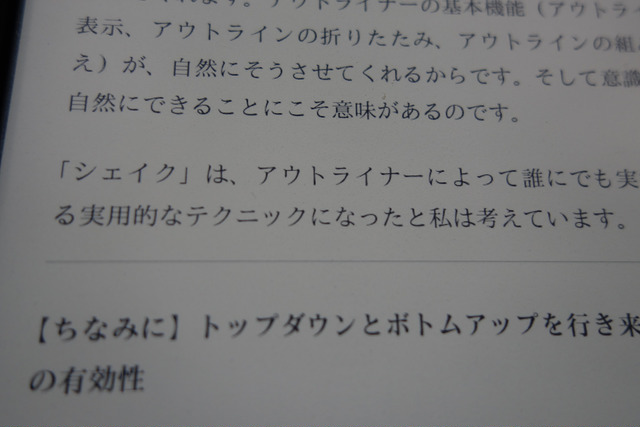 れます。アウトライナーの基本機能（アウトラ
表示、アウトラインの折りたたみ、アウトラインの組
え）が、自然にそうさせてくれるからです。そして意識
自然にできることにこそ意味があるのです。
「シェイク」は、アウトライナーによって誰にでも実
る実用的なテクニックになったと私は考えています。
【ちなみに】トップダウンとボトムアップを行き来
の有効性